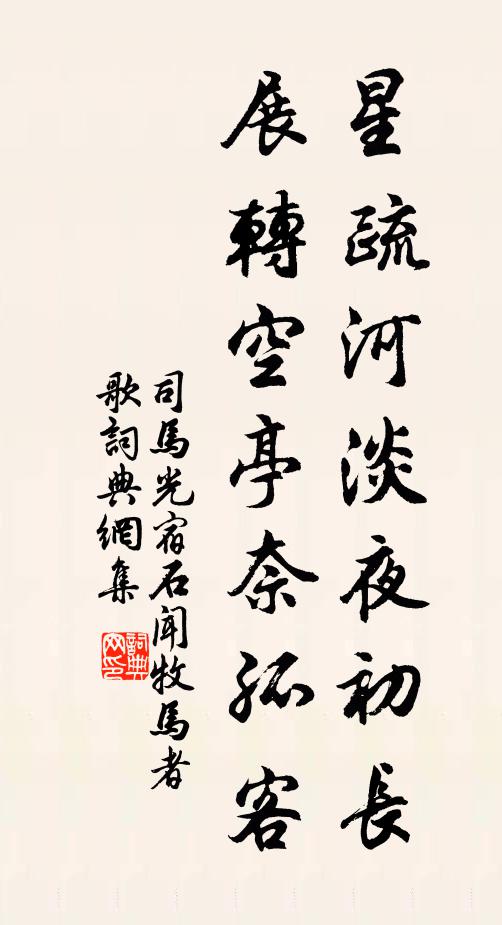 星疏河淡夜初長
展轉空亭奈孤客
司馬光宿石聞牧馬者
歌詞典網集
詞典网印